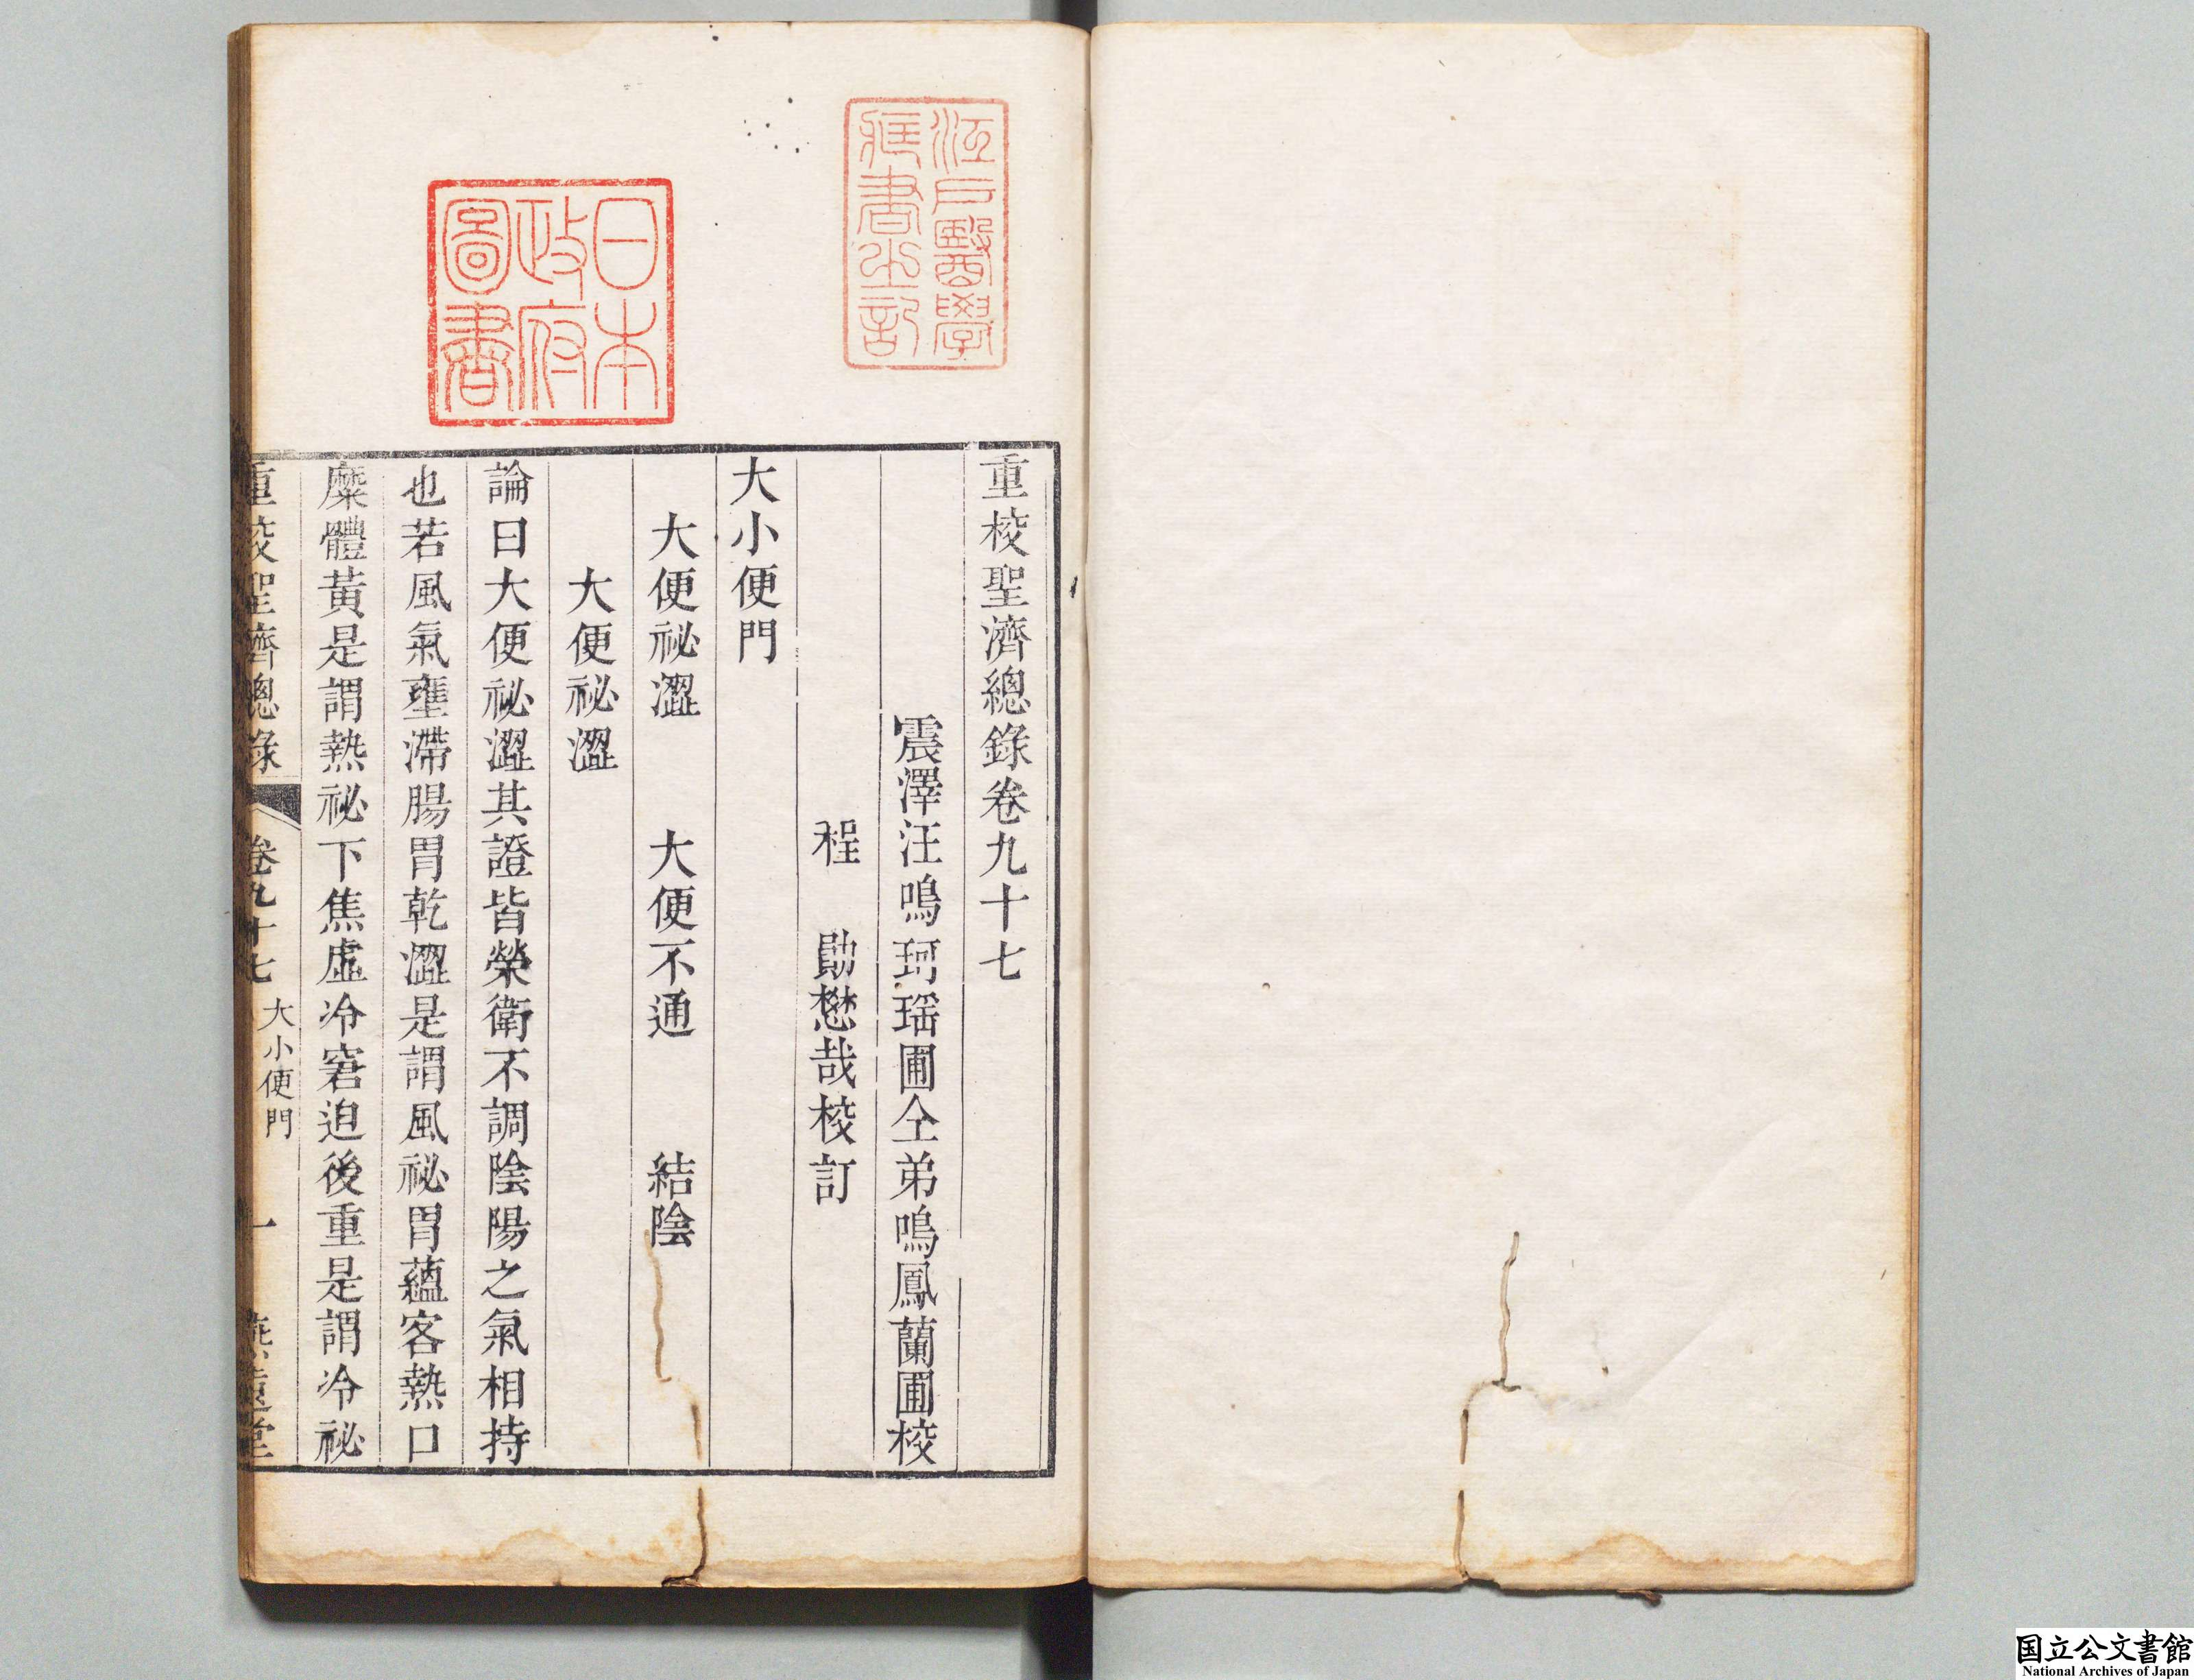 重校聖濟總錄卷九十七
震澤汪鳴珂瑶圃仝弟鳴鳳蘭圃校
程　勛懋哉校訂
大小便門
大便祕澀　大便不通　結陰
大便祕澀
論曰大便祕澀其證皆榮衛不調陰陽之氣相持
也若風氣壅滯腸胃乾澀是謂風祕胃蘊客熱口
糜體黃是謂熱祕下焦虛冷窘迫後重是謂冷祕
重校聖濟總錄　卷九十七　大小便門　一　燕遠堂
江戶醫學
藏書之記
日本
政府
圖書
国立公文書館
National Archives of Japan